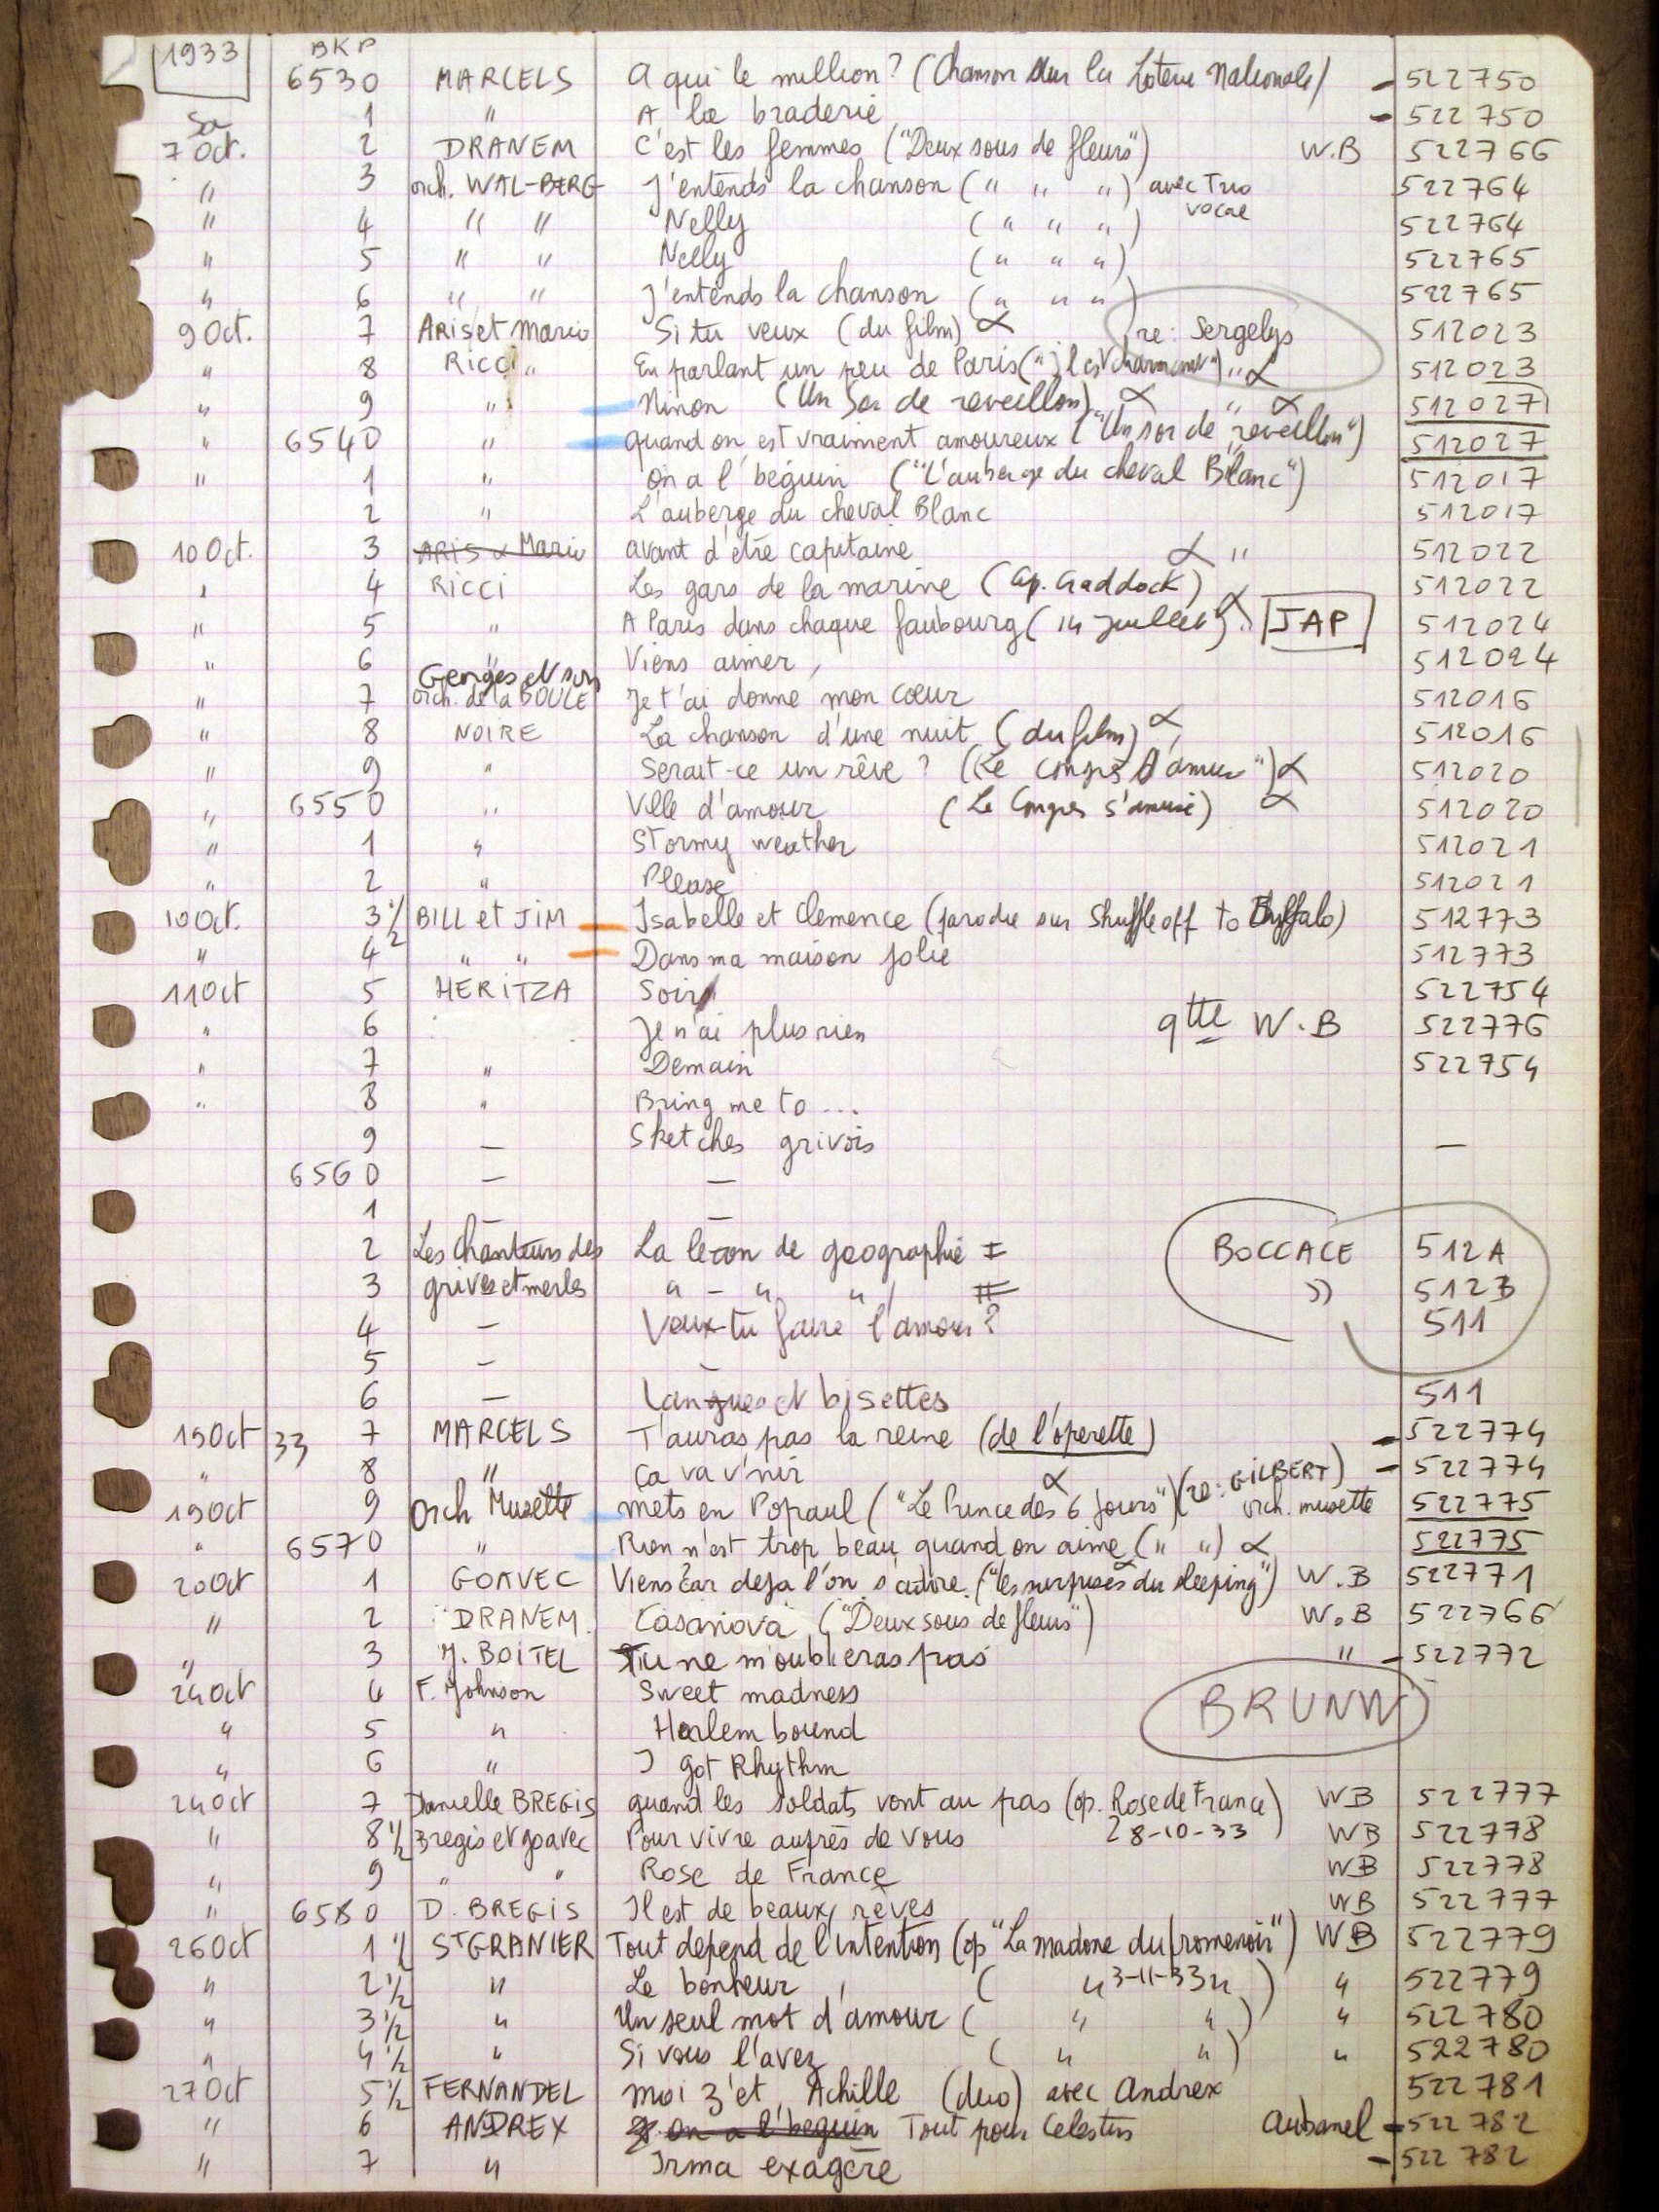 1933 BKP
6530 MARCELS A qui le million? (Chanson sur la Loterie Nationale) - 522750
1 " A la braderie - 522750
Sa
7 Oct. 2 DRANEM C'est les femmes ("Deux sous de fleurs") W.B 522766
" 3 orch. WAL-BERG J'entends la chanson (" " ") avec Trio vocal 522764
" 4 " " Nelly (" " ") 522764
" 5 " " Nelly (" " ") 522765
" 6 " " J'entends la chanson (" " ") 522765
9 Oct. 7 Aris et Mario Si tu veux (du film) α re: Sergelys 512023
" 8 Ricci " En parlant un peu de Paris " α 512023
" 9 " Ninon (Un Soir de reveillon) α " α 512027
" 6540 " quand on est vraiment amoureux ("Un soir de reveillon") 512027
" 1 " On a l'béguin ("L'auberge du cheval Blanc") 512017
2 " L'auberge du cheval Blanc 512017
10 Oct. 3 ARIS & Mario avant d'être capitaine α " 512022
" 4 RICCI Les gars de la marine (Cap. Craddock) 512022
" 5 " A Paris dans chaque faubourg (14 Juillet) α JAP 512024
" 6 " Viens aimer 512024
Georges et son
" 7 orch. de la BOULE Je t'ai donné mon cœur 512016
" 8 NOIRE La chanson d'une nuit (du film) α 512016
" 9 " Serait-ce un rêve? α 512020
" 6550 " Ville d'amour (Le Congres s'amuse) α 512020
" 1 " Stormy weather 512021
" 2 " Please 512021
10 Oct. 3 1/2 BILL et JIM Isabelle et Clemence (parodie sur Shuffle off to Buffalo) 512773
" 4 2 " " Dans ma maison jolie 512773
11 Oct 5 HERITZA Soir 522754
" 6 Je n'ai plus rien qtte W.B 522776
" 7 " Demain 522754
" 8 " Bring me to ...
9 — Sketches grivois —
6560 — —
1 — —
2 Les Chanteurs des La leçon de geographie I BOCCACE 512A
3 grives et merles " - " " II " 512B
4 — Veux-tu faire l'amour? 511
5 — —
6 — Langues et bisettes 511
19 Oct 33 7 MARCELS T'auras pas la reine (de l'operette) - 522774
" 8 " Ca va v'nir α - 522774
19 Oct 9 Orch Musette Mets en Popaul ("Le Prince des 6 Jours") (re: GILBERT) orch. musette 522775
" 6570 " Rien n'est trop beau quand on aime (" ") α 522775
20 Oct 1 GOAVEC Viens car deja l'on s'adore ("les surprises du sleeping") W.B 522771
" 2 DRANEM Casanova ("Deux sous de fleurs") W.B 522766
" 3 J. BOITEL Tu ne m'oublieras pas " - 522772
24 Oct 4 F. Johnson Sweet madness BRUNW
" 5 " Harlem bound
" 6 " I got Rhythm
24 Oct 7 Danielle BREGIS quand les soldats vont au pas (op. Rose de France) WB 522777
" 8 1/2 Bregis et goavec Pour vivre auprès de vous 28-10-33 WB 522778
" 9 " " Rose de France WB 522778
" 6580 D. BREGIS Il est de beaux rêves WB 522777
26 Oct 1 1/2 ST GRANIER Tout depend de l'intention (op "La madone du promenoir") WB 522779
" 2 1/2 " Le bonheur ( " 3-11-33 " ) " 522779
" 3 1/2 " Un seul mot d'amour ( " " ) " 522780
" 4 1/2 " Si vous l'avez ( " " ) " 522780
27 Oct 5 1/2 FERNANDEL Moi z'et Achille (duo) avec Andrex 522781
" 6 ANDREX on a l'beguin Tout pour Celestin Aubanel - 522782
" 7 " Irma exagère - 522782